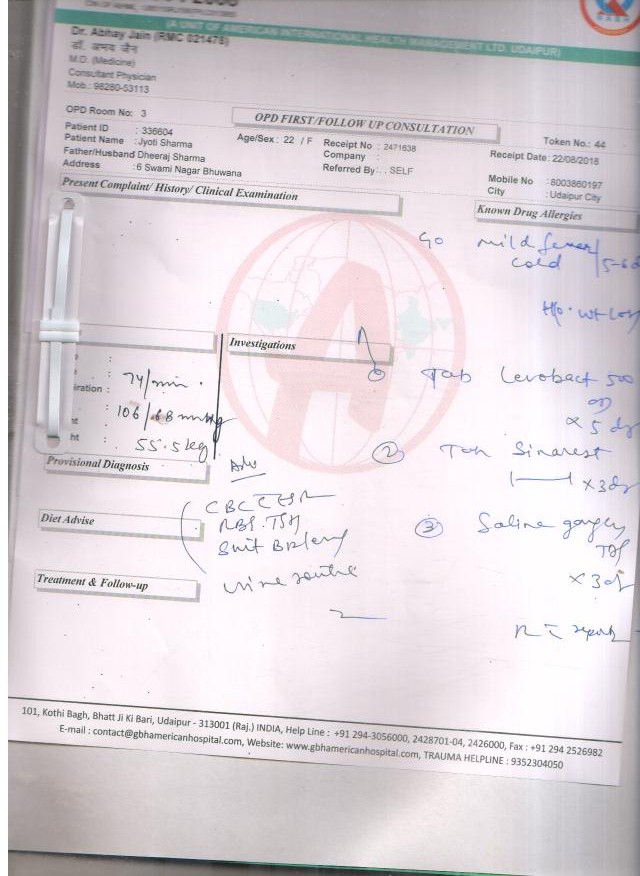 (A UNIT OF AMERICAN INTERNATIONAL HEALTH MANAGEMENT LTD. UDAIPUR)
Dr. Abhay Jain (RMC 021478)
डॉ. अभय जैन
M.D. (Medicine)
Consultant Physician
Mob.: 98280-53113
OPD Room No: 3
OPD FIRST/FOLLOW UP CONSULTATION
Token No.: 44
Patient ID : 336604
Age/Sex : 22 / F
Receipt No : 2471638
Receipt Date: 22/08/2018
Patient Name : Jyoti Sharma
Company :
Father/Husband Dheeraj Sharma
Referred By : . SELF
Mobile No : 8003860197
Address : 6 Swami Nagar Bhuwana
City : Udaipur City
Present Complaint/ History/ Clinical Examination
Known Drug Allergies
mild fever/
cold 5-6d
H/o. wt loss
Investigations
74/min.
iration :
106/68 mmHg
ht : 55.5kg
Tab Levobact 500
OD
x 5 d
② Tab Sinarest
x 3d
Provisional Diagnosis
Adv
CBC ESR
RBS. TSH
③ Saline gargles
TDS
x 3d
Diet Advise
urine routine
Treatment & Follow-up
reports
101, Kothi Bagh, Bhatt Ji Ki Bari, Udaipur - 313001 (Raj.) INDIA, Help Line : +91 294-3056000, 2428701-04, 2426000, Fax : +91 294 2526982
E-mail : contact@gbhamericanhospital.com, Website: www.gbhamericanhospital.com, TRAUMA HELPLINE : 9352304050